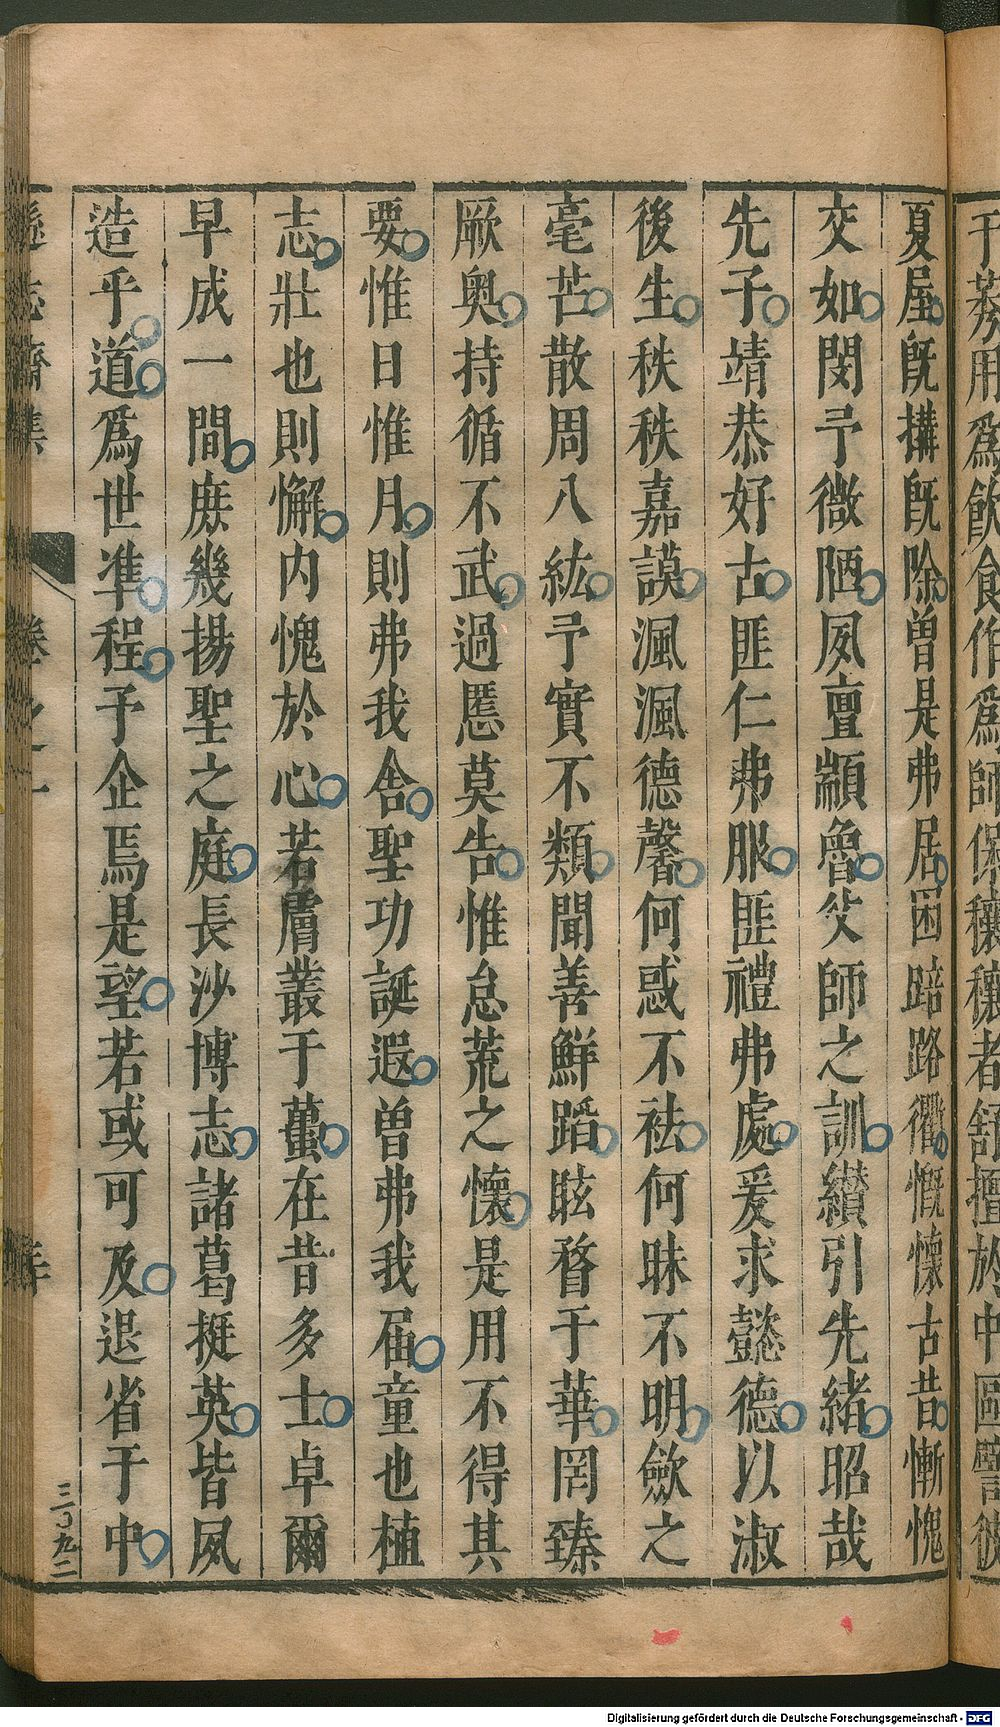 于蒸用爲飮食作爲師保穰穰者舒擅於中區
夏屋旣搆旣除曾是弗居困踣路衢慨懷古昔慚愧
交如閔予微陋夙亶顓魯父師之訓纘引先緒昭哉
先子靖恭好古匪仁弗服匪禮弗處爰求懿德以淑
後生秩秩嘉謨渢渢德馨何惑不袪何昧不明斂之
毫芒散周八紘予實不類聞善鮮蹈眩瞀于華罔臻
厥奥持循不武過慝莫告惟怠荒之懷是用不得其
要惟日惟月則弗我舍聖功誕遐曾弗我届童也植
志壯也則懈内愧於心若膚叢于蠆在昔多士卓爾
早成一間庶幾揚聖之庭長沙博志諸葛挺英皆夙
造乎道爲世準程予企焉是望若或可及退省于中
遜志齋集 卷之一
三百九二
Digitalisierung gefördert durch die Deutsche Forschungsgemeinschaft - DFG